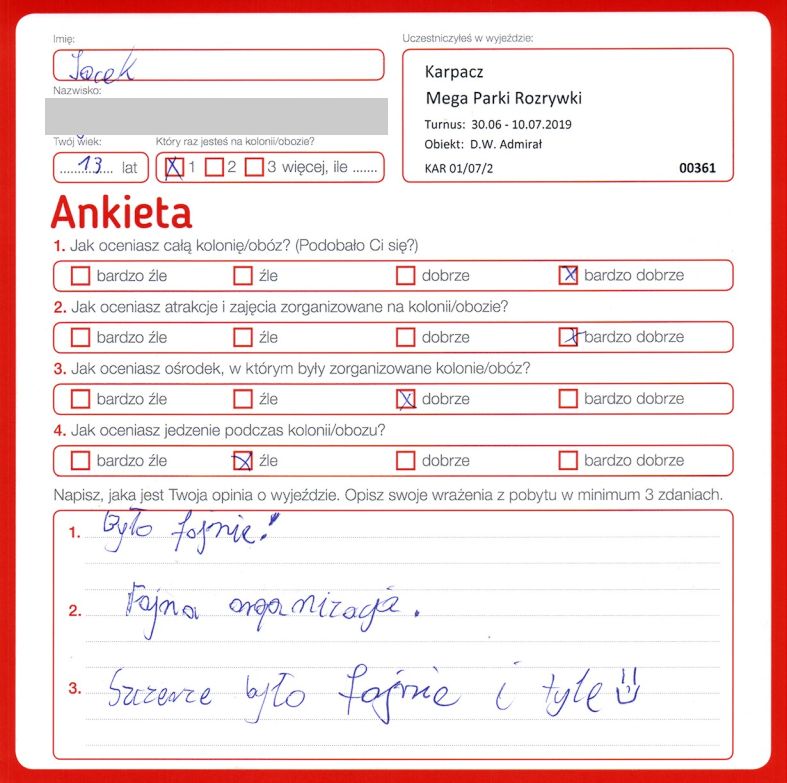 Imię:
Uczestniczyłeś w wyjeździe:
Jacek
Karpacz
Nazwisko:
Mega Parki Rozrywki
Turnus: 30.06 - 10.07.2019
Twój wiek:
Który raz jesteś na kolonii/obozie?
Obiekt: D.W. Admirał
13 lat
X 1 2 3 więcej, ile .......
KAR 01/07/2 00361
Ankieta
1. Jak oceniasz całą kolonię/obóz? (Podobało Ci się?)
bardzo źle źle dobrze X bardzo dobrze
2. Jak oceniasz atrakcje i zajęcia zorganizowane na kolonii/obozie?
bardzo źle źle dobrze X bardzo dobrze
3. Jak oceniasz ośrodek, w którym były zorganizowane kolonie/obóz?
bardzo źle źle X dobrze bardzo dobrze
4. Jak oceniasz jedzenie podczas kolonii/obozu?
bardzo źle X źle dobrze bardzo dobrze
Napisz, jaka jest Twoja opinia o wyjeździe. Opisz swoje wrażenia z pobytu w minimum 3 zdaniach.
1. Było fajnie!
2. Fajna organizacja.
3. było fajnie i tyle